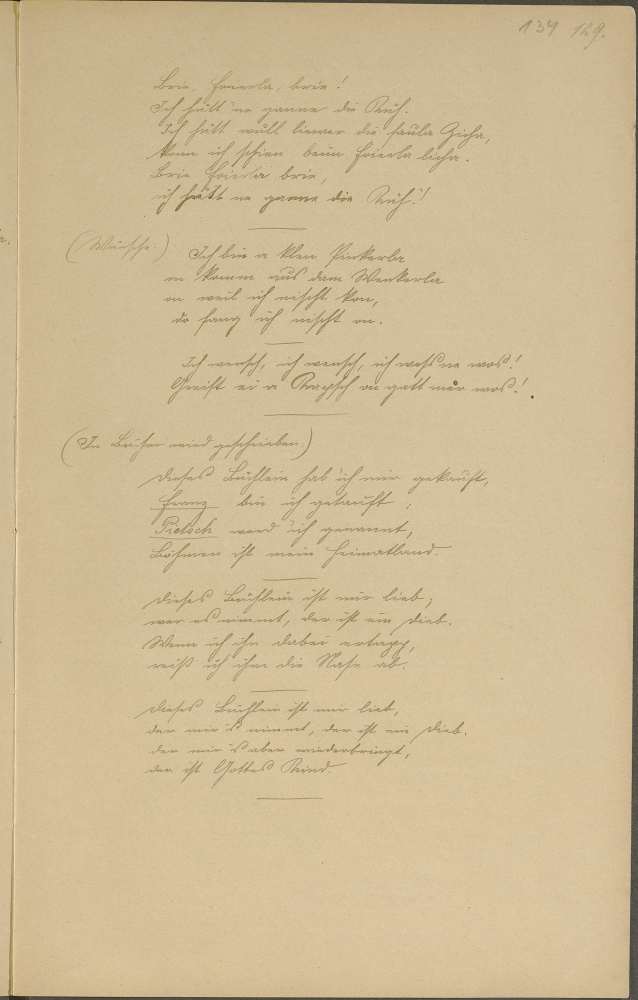 134 129.
Brie, Feierla, brie!
Ich hätt' ne ganne die Ruh.
Ich hätt wull liewer die faula Zicha,
wenn ich schien beim Feierla licha.
Brie Feierla brie,
ich hätt ne ganne die Ruh!
(Wünsche.) Ich bin a klen Pinkerla
on komm aus dam Wenkerla
on weil ich nischt kon,
do fang ich nischt on.
Ich wensch, ich wensch, ich wess ne wos!
Greift ei a Rapsch on gatt mer wos!
(In Bücher wird geschrieben.)
Dieses Büchlein hab' ich mir gekauft,
Franz bin ich getauft,
Pietsch werd' ich genannt,
Böhmen ist mein Heimatland.
Dieses Büchlein ist mir lieb;
wer es nimmt, der ist ein Dieb.
Wenn ich ihn dabei ertapp,
reiß ich ihm die Nase ab.
Dieses Büchlein ist mir lieb,
der mir's nimmt, der ist ein Dieb.
der mir's aber wiederbringt,
der ist Gottes Kind.